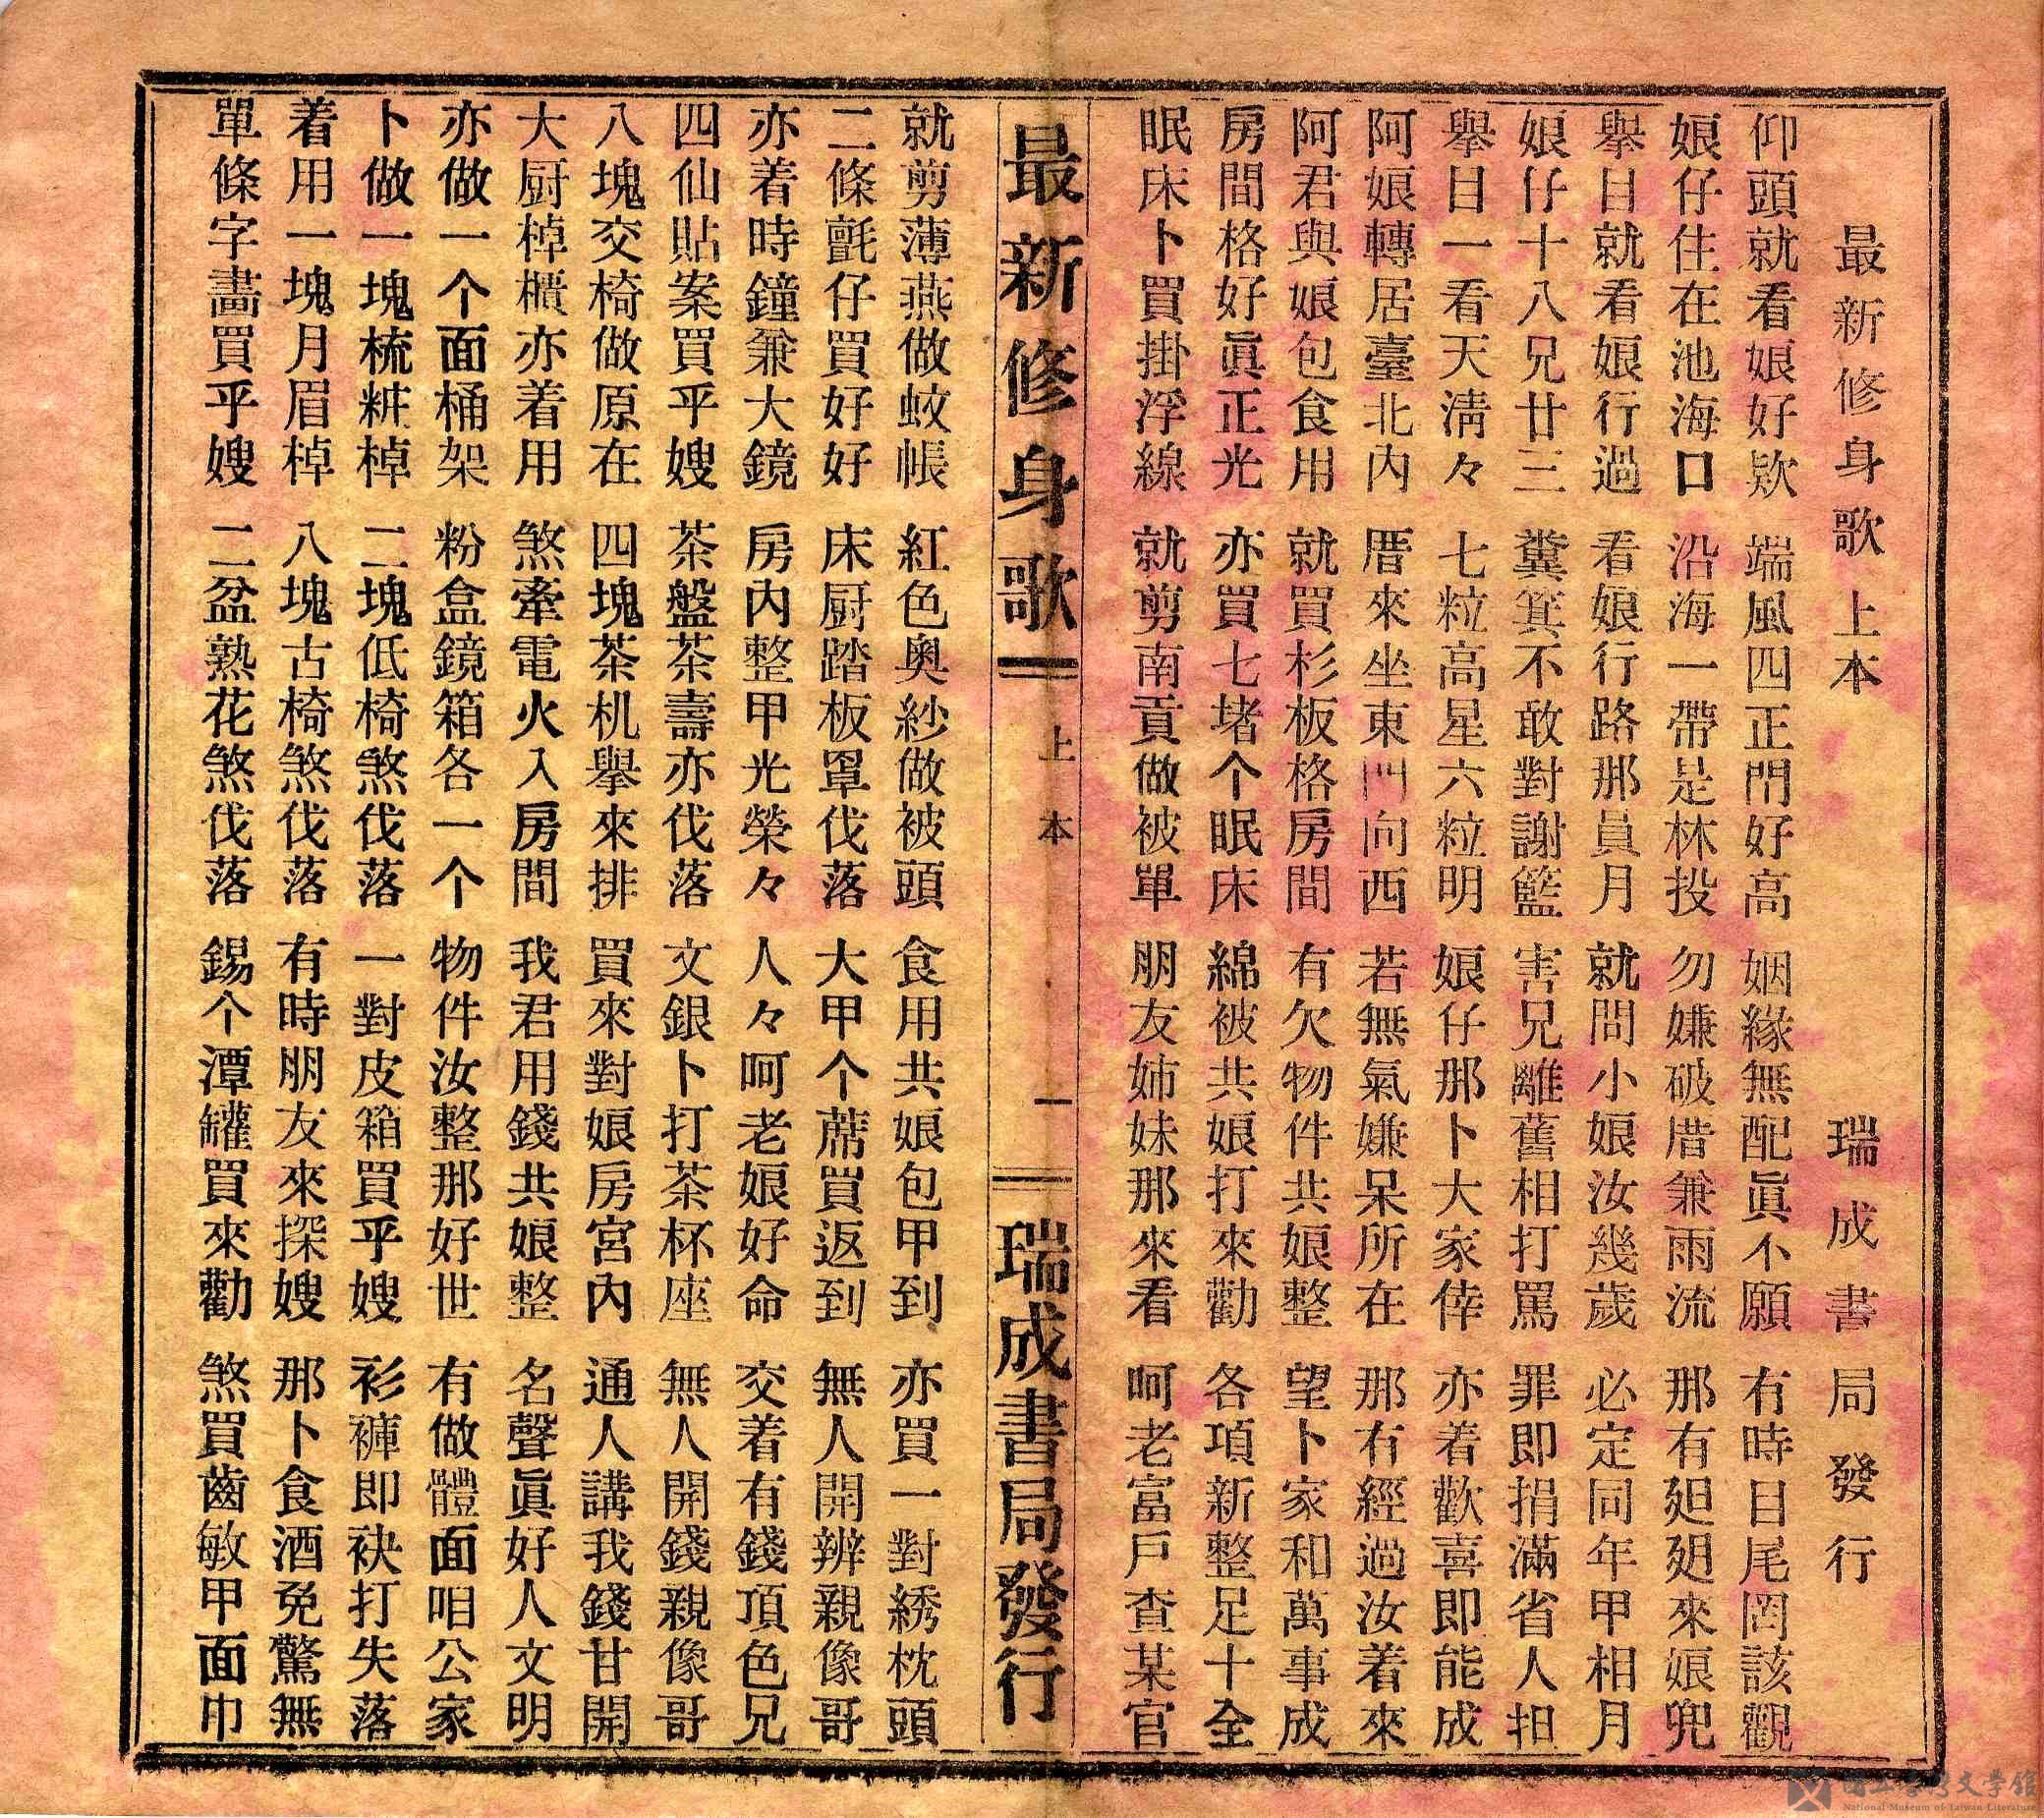 最新修身歌上本 瑞成書局發行
仰頭就看娘好欵 端風四正門好高 姻緣無配眞不願 有時目尾罔該觀
娘仔住在池海口 沿海一帶是林投 勿嫌破厝兼雨流 那有廻來娘兜
舉目就看娘行過 看娘行路那員月 就問小娘汝幾歲 必定同年甲相月
娘仔十八兄廿三 糞箕不敢對謝籃 害兄離舊相打罵 罪即捐滿省人担
舉目一看天淸々 七粒高星六粒明 娘仔那卜大家倖 亦着歡喜即能成
阿娘轉居臺北內 厝來坐東門向西 若無氣嫌呆所在 那有經過汝着來
阿君與娘包食用 就買杉板格房間 有欠物件共娘整 望卜家和萬事成
房間格好眞正光 亦買七堵个眠床 綿被共娘打來勸 各項新整足十全
眠床卜買掛浮線 就剪南貢做被單 朋友姉妹那來看 呵老富戶查某官
最新修身歌 上本 一 瑞成書局發行
就剪薄燕做蚊帳 紅色奧紗做被頭 食用共娘包甲到 亦買一對綉枕頭
二條氈仔買好好 床厨踏板罩伐落 大甲个蓆買返到 無人開辨親像哥
亦着時鐘兼大鏡 房內整甲光榮々 人々呵老娘好命 交着有錢頂色兄
四仙貼案買乎嫂 茶盤茶壽亦伐落 文銀卜打茶杯座 無人開錢親像哥
八塊交椅做原在 四塊茶机舉來排 買來對娘房宮內 通人講我錢甘開
大厨棹櫃亦着用 煞牽電火入房間 我君用錢共娘整 名聲眞好人文明
亦做一个面桶架 粉盒鏡箱各一个 物件汝整那好世 有做體面咱公家
卜做一塊梳粧棹 二塊低椅煞伐落 一對皮箱買乎嫂 衫褲即袂打失落
着用一塊月眉棹 八塊古椅煞伐落 有時朋友來探嫂 那卜食酒免驚無
單條字畵買乎嫂 二盆熟花煞伐落 錫个潭罐買來勸 煞買齒敏甲面巾
國立臺灣文學館
National Museum of Taiwan Literature